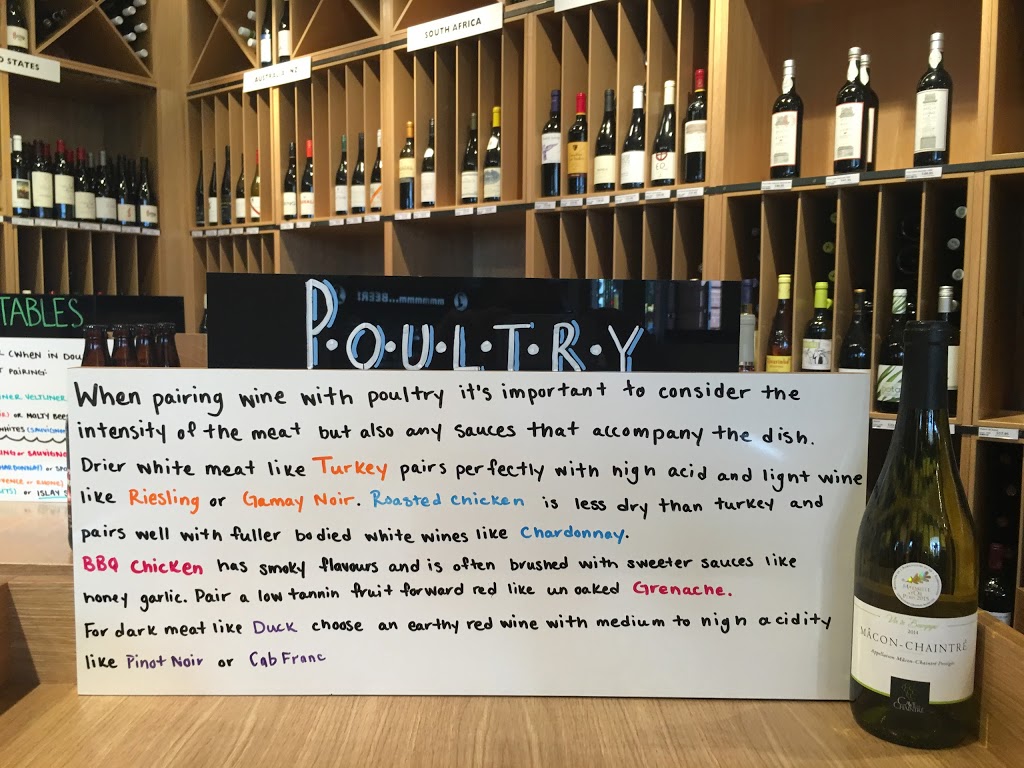 SOUTH AFRICA
STATES
TABLES
P·O·U·L·T·R·Y
When pairing wine with poultry it's important to consider the
intensity of the meat but also any sauces that accompany the dish.
Drier white meat like Turkey pairs perfectly with high acid and light wine
like Riesling or Gamay Noir. Roasted chicken is less dry than turkey and
pairs well with fuller bodied white wines like Chardonnay.
BBQ Chicken has smoky flavours and is often brushed with sweeter sauces like
honey garlic. Pair a low tannin fruit forward red like un oaked Grenache.
For dark meat like Duck choose an earthy red wine with medium to high acidity
like Pinot Noir or Cab Franc
(WHEN IN DOU
PAIRING:
NER VELTLINER
OR MALTY BEE
WHITES (SAUVIGNON
OR SAUVIGNO
OR SPA
OR RHONE)
OR ISLAY S
Vin de Bourgogne
2014
MÂCON-CHAINTRÉ
Appellation Mâcon-Chaintré Protégée
CHAINTRÉ